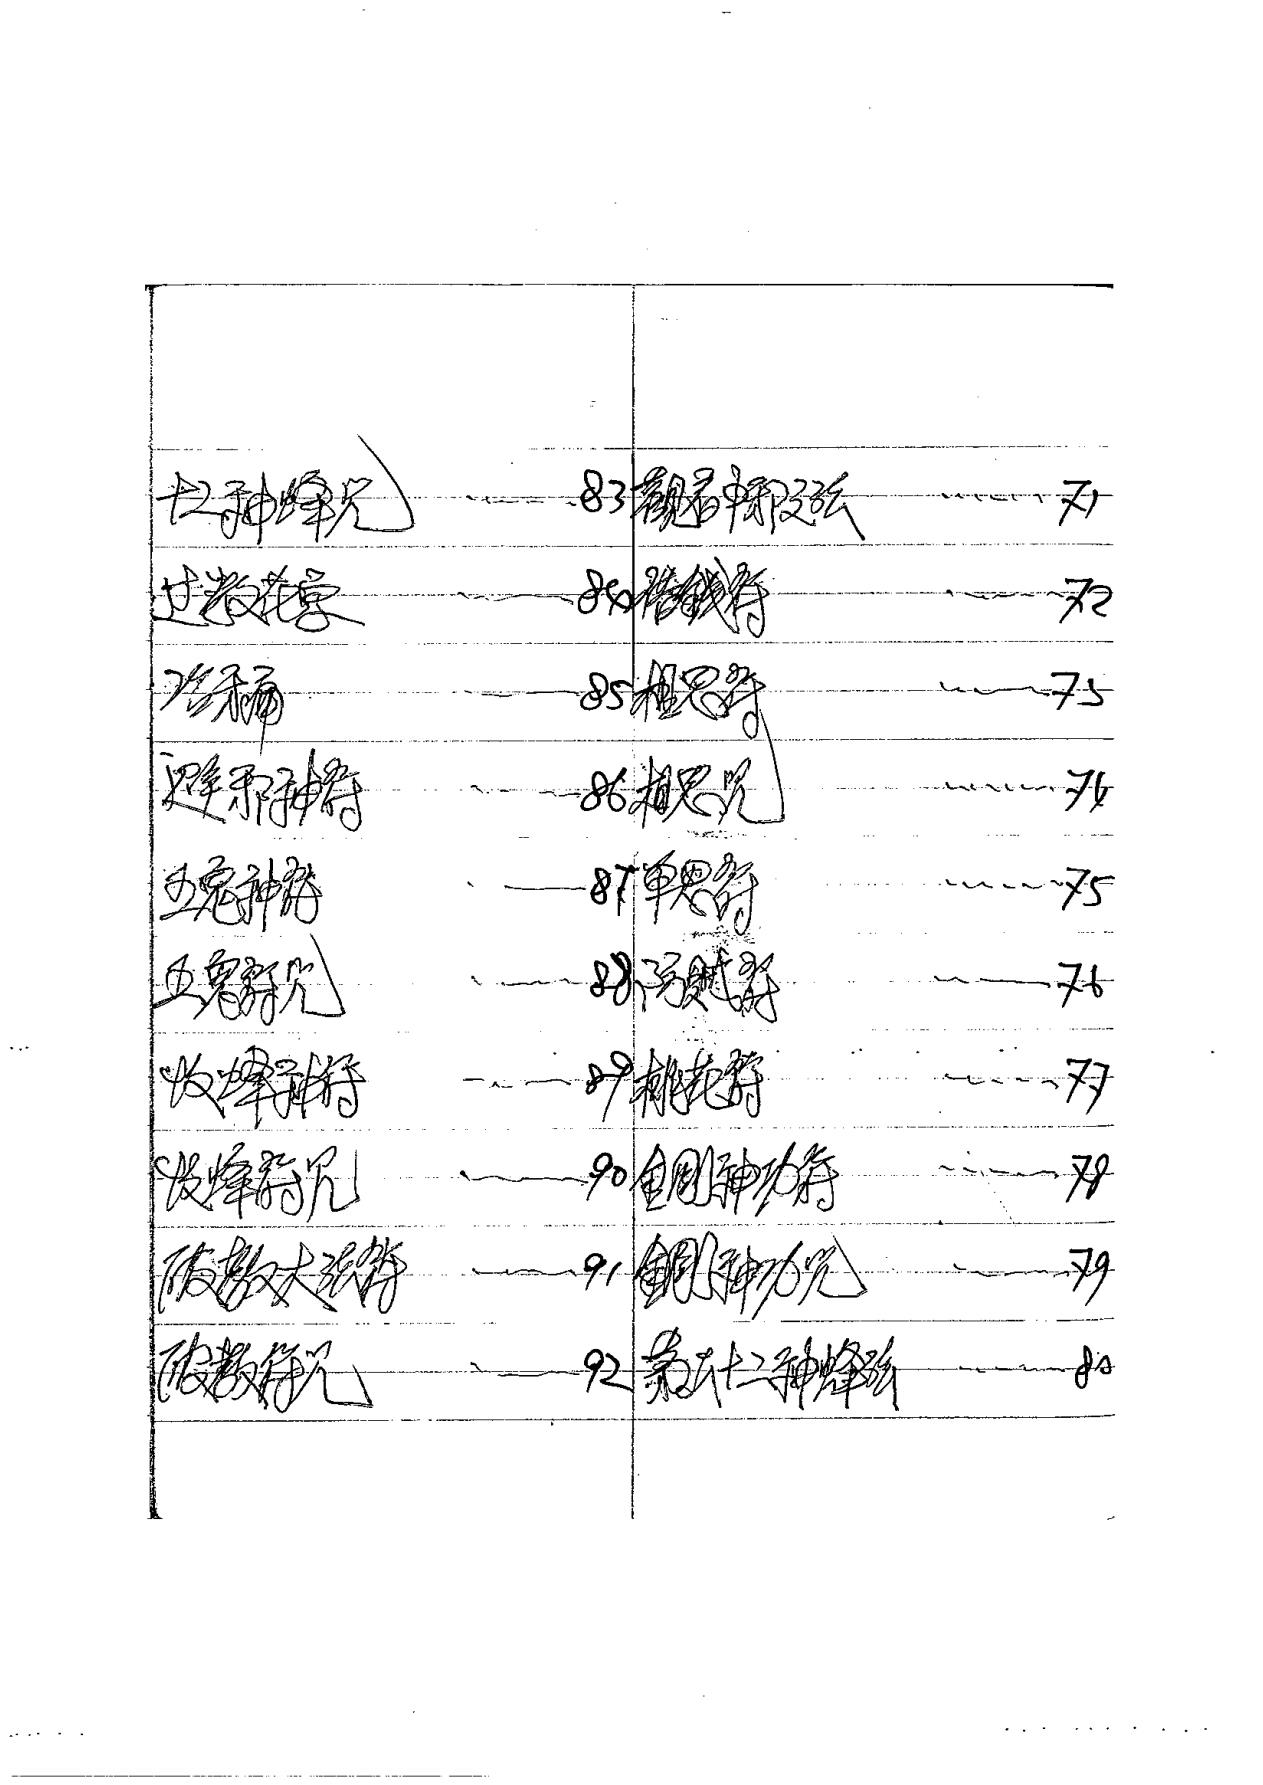 十二神峰咒 83
过教花字 84
治禾痛 85
避邪神符 86
五鬼神符 87
五鬼符咒 88
收峰神符 89
收峰符咒 90
破教大法符 91
破教符咒 92
觀看中邪法 71
借錢符 72
相思符 73
相思咒 74
单思符 75
符 76
桃花符 77
金剛神功符 78
金剛神功咒 79
十二神峰法 80